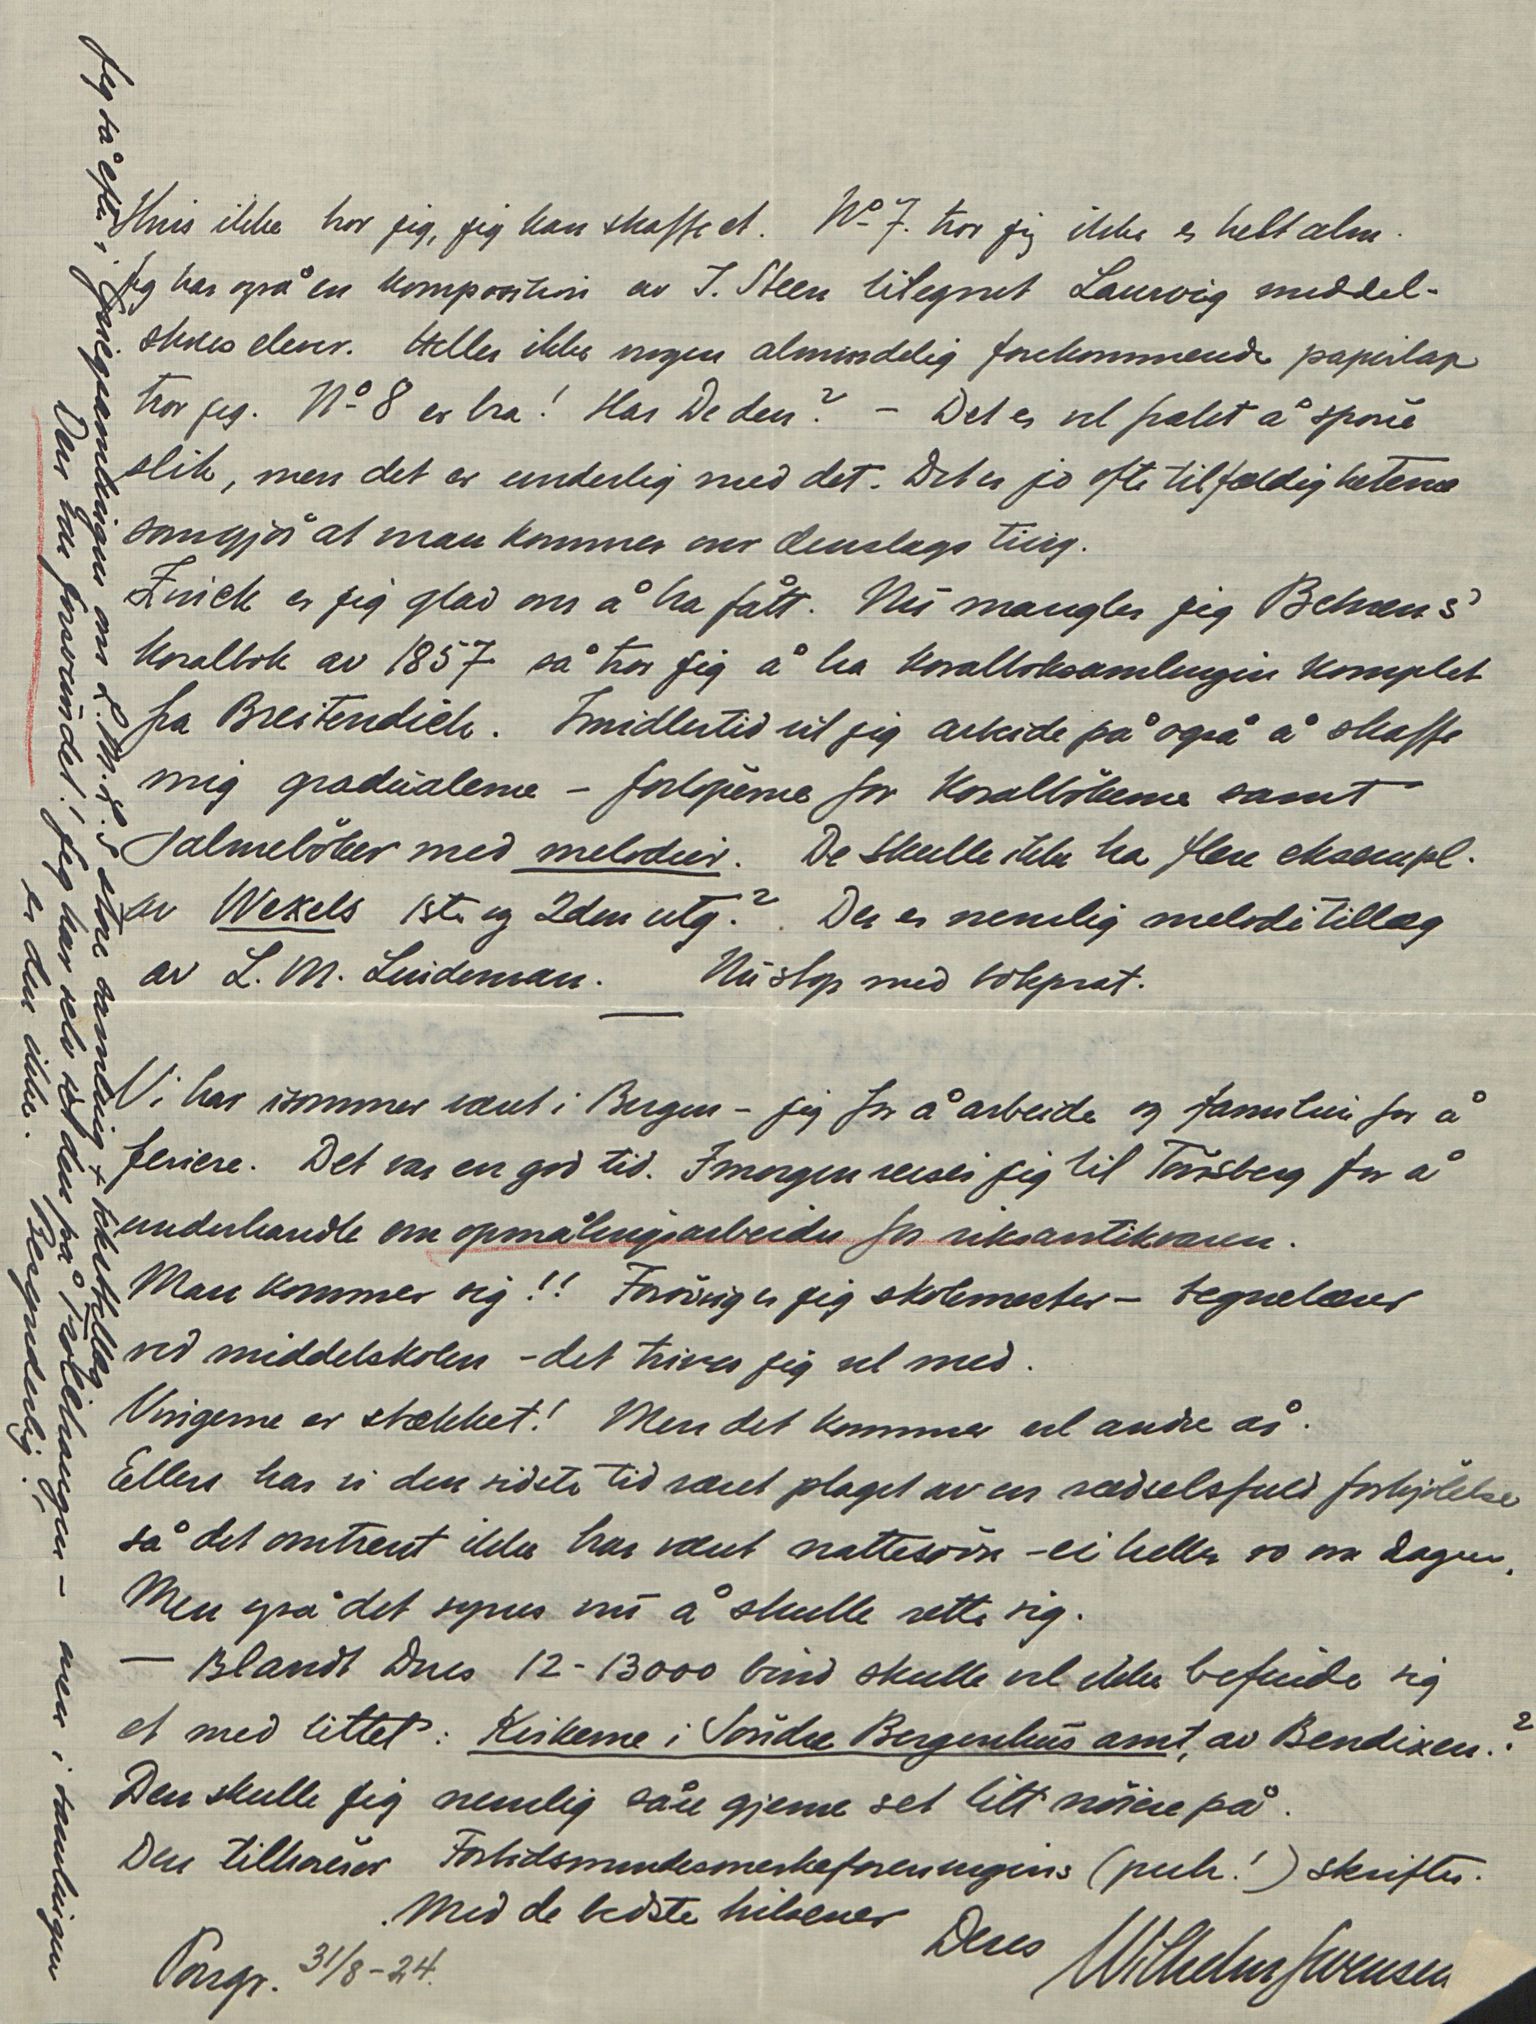 Hvis ikke tror jeg, jeg kan skaffe et. No 7. tror jeg ikke er helt alm.
Jeg har også en komposition av J. Steen tilegnet Laurvig middel-
skoles elever. Heller ikke nogen almindelig forekommende papirlap
tror jeg. No 8 er bra! Har De den? – Det er vel fælt å spørre
slik, men det er underlig med det. Det er jo ofte tilfældighetene
som gjør at man kommer over denslags ting.
Zinck er jeg glad om å ha fått. Nu mangler jeg Behrens'
koralbok av 1857 så tror jeg å ha koralboksamlingen komplet
fra Breitendich. Imidlertid vil jeg arbeide på også å skaffe
mig gradualerne – forløperne for koralbøkerne samt
salmebøker med melodier. De skulle ikke ha flere eksempl.
av Wexels 1ste og 2den utg.? Der er nemlig meloditillæg
av L. M. Lindeman. Nu stop med bokprat.
Vi har isommer været i Bergen – jeg for å arbeide og familien for å
feriere. Det var en god tid. Imorgen reiser jeg til Tønsberg for å
underhandle om opmålingsarbeider for riksantikvaren.
Man kommer sig!! Forøvrig er jeg skolemester – tegnelærer
ved middelskolen – det trives jeg vel med.
Vingerne er stækket! Men det kommer vel andre år.
Ellers har vi den sidste tid været plaget av en rædselsfuld forkjølelse
så det omtrent ikke har været nattesøvn – ei heller ro om dagen.
Men også det synes nu å skulle rette sig.
— Blandt Deres 12-13000 bind skulle vel ikke befinde sig
et med tittel: Kirkerne i Søndre Bergenhus amt, av Bendixen.?
Den skulle jeg nemlig såre gjerne set litt nøiere på.
Den tilhører Fortidsmindesmerkeforeningens (puh!) skrifter.
Med de bedste hilsener
Deres Wilhelm Swensen
Porsgr. 31/8-24.
Jeg så efter i Griegsamlingen om L.M.L.s store samling + tilleg
Den var forsvundet! Jeg har selv set den på Troldhaugen – men i samlingen
er den ikke. Besynderlig!